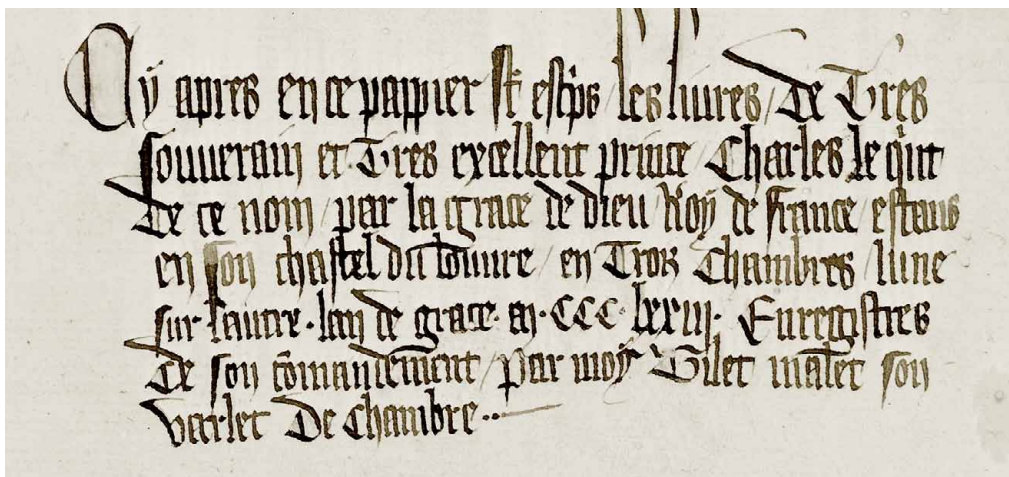 Cy apres en ce pappier st escrips / les livres / de Tres
souverain et Tres excellent prince / Charles le qint
de ce nom / par la grace de dieu / Roy de france / estans
en son chastel du louvre / en Trois Chambres / lune
sur lautre · lan de grace · m · CCC · lxxiii · Enregistres
de son commandement / par moy Gilet malet son
varlet De chambre ··